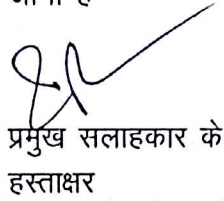 प्रमुख सलाहकार के
हस्ताक्षर